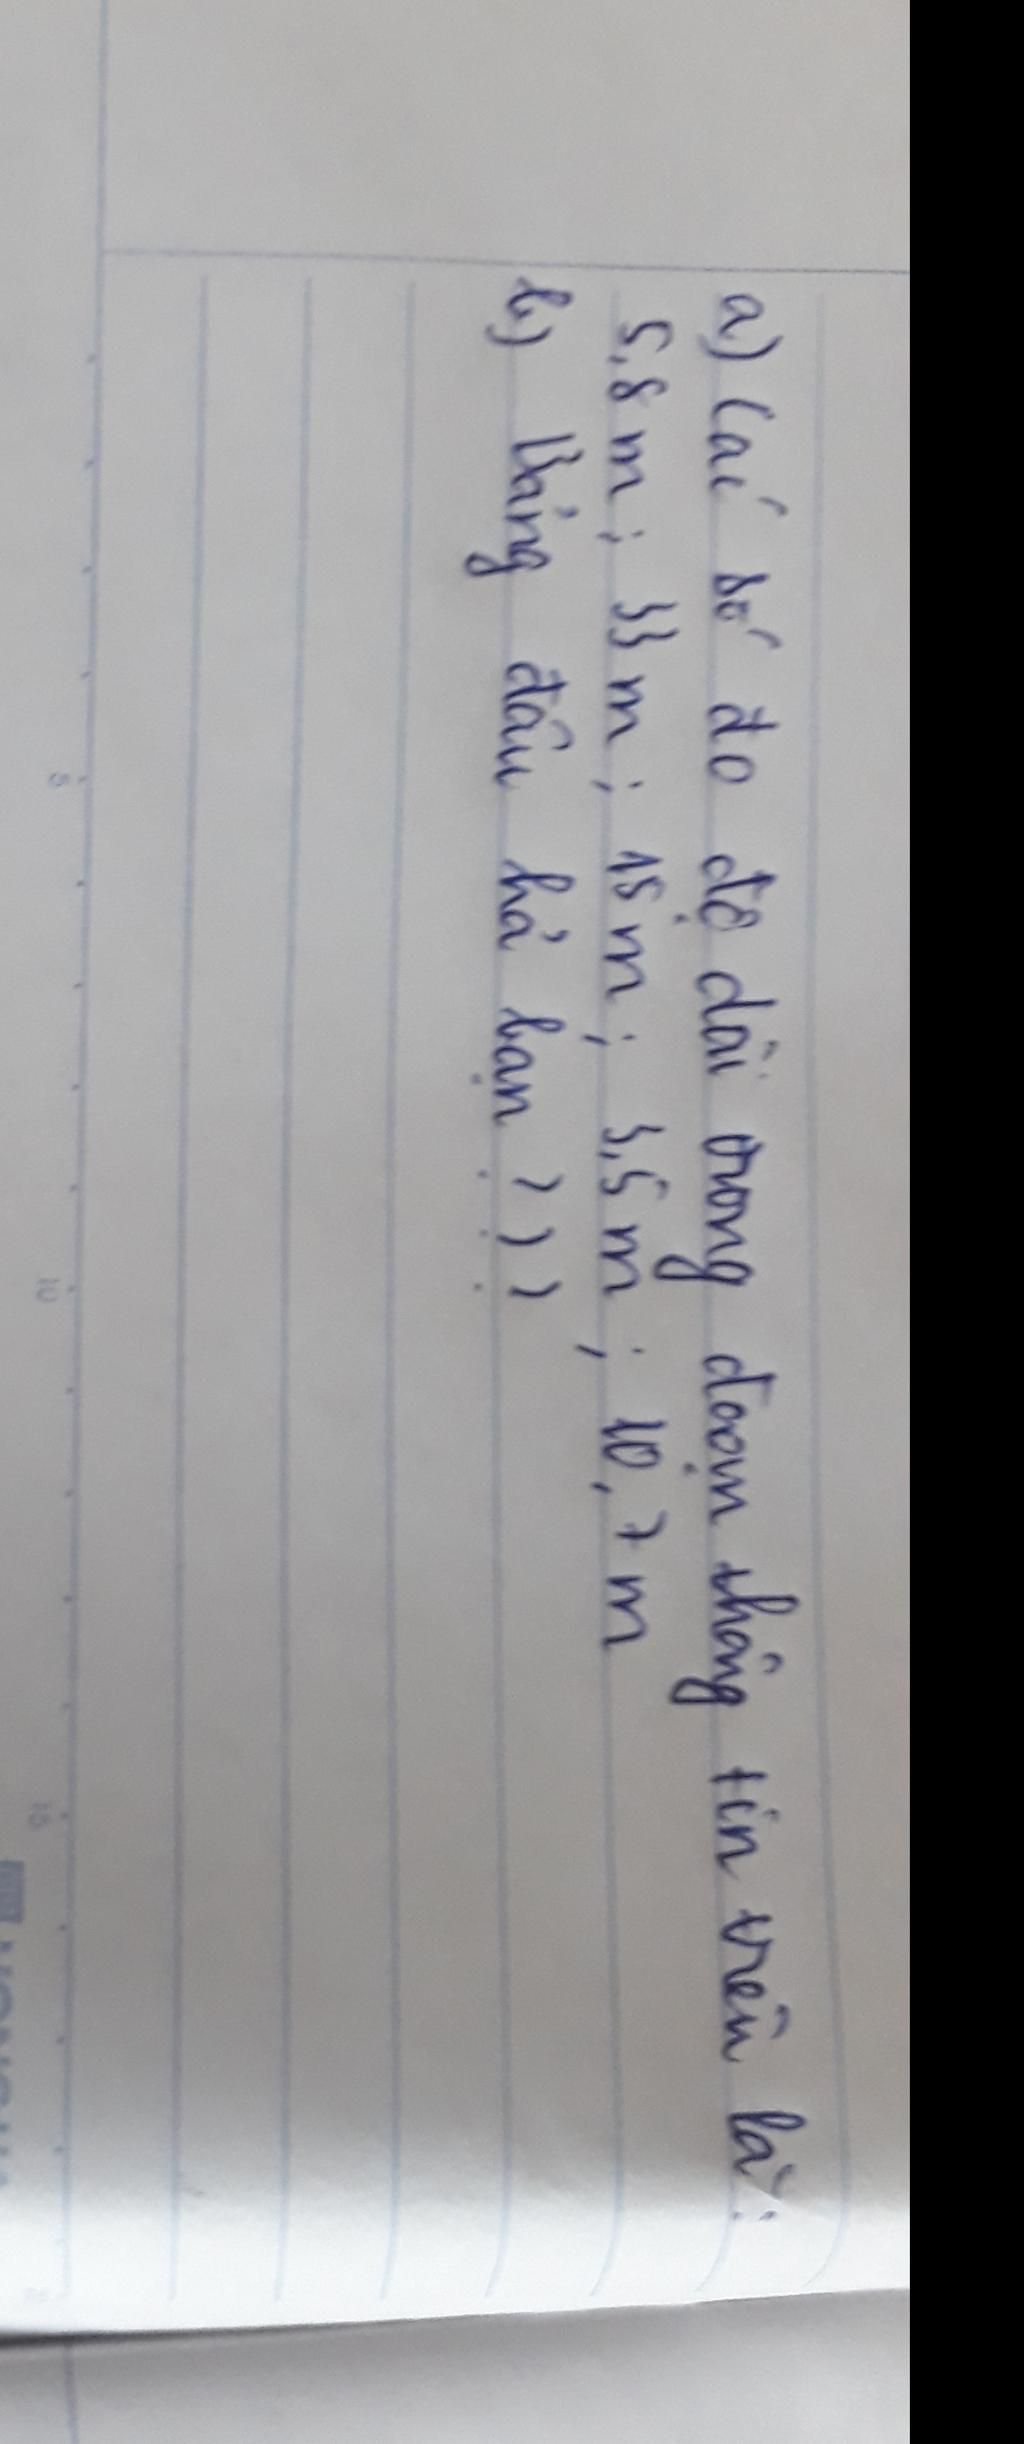 a) Các số đo độ dài trong đoạn thông tin trên là:
5,8 m; 33 m; 15 m; 3,5 m; 10,7 m
b) Bảng đâu hả bạn ???
5
10
15